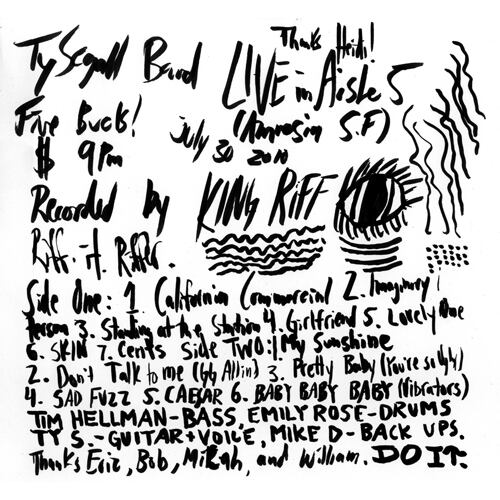 Thanks Heidi!
Ty Segall Band LIVE in Aisle 5
Five Bucks! (Amnesia S.F)
$ 9pm July 30 2010
Recorded by KING RIFF
Riff. it. Riffer.
Side One: 1. California Commercial 2. Imaginary
Person 3. Standing at the Station 4. Girlfriend 5. Lovely One
6. SKIN 7. Cents Side Two: 1. My Sunshine
2. Don't Talk to me (GG Allin) 3. Pretty Baby (You're so Ugly)
4. SAD FUZZ 5. CAESAR 6. BABY BABY BABY (Vibrators)
TIM HELLMAN-BASS. EMILY ROSE-DRUMS
TY S.-GUITAR+VOICE, MIKE D-BACK UPS.
Thanks Eric, Bob, Mikah, and William. DO IT.